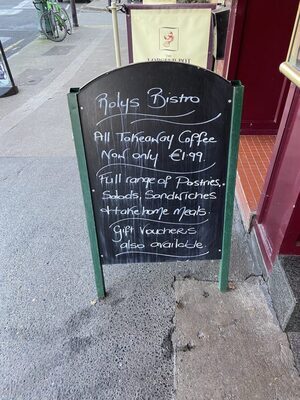 Rolys Bistro
All Takeaway Coffee
Now only €1.99
Full range of Pastries
Salads, Sandwiches
& take home meals.
Gift Vouchers
also available